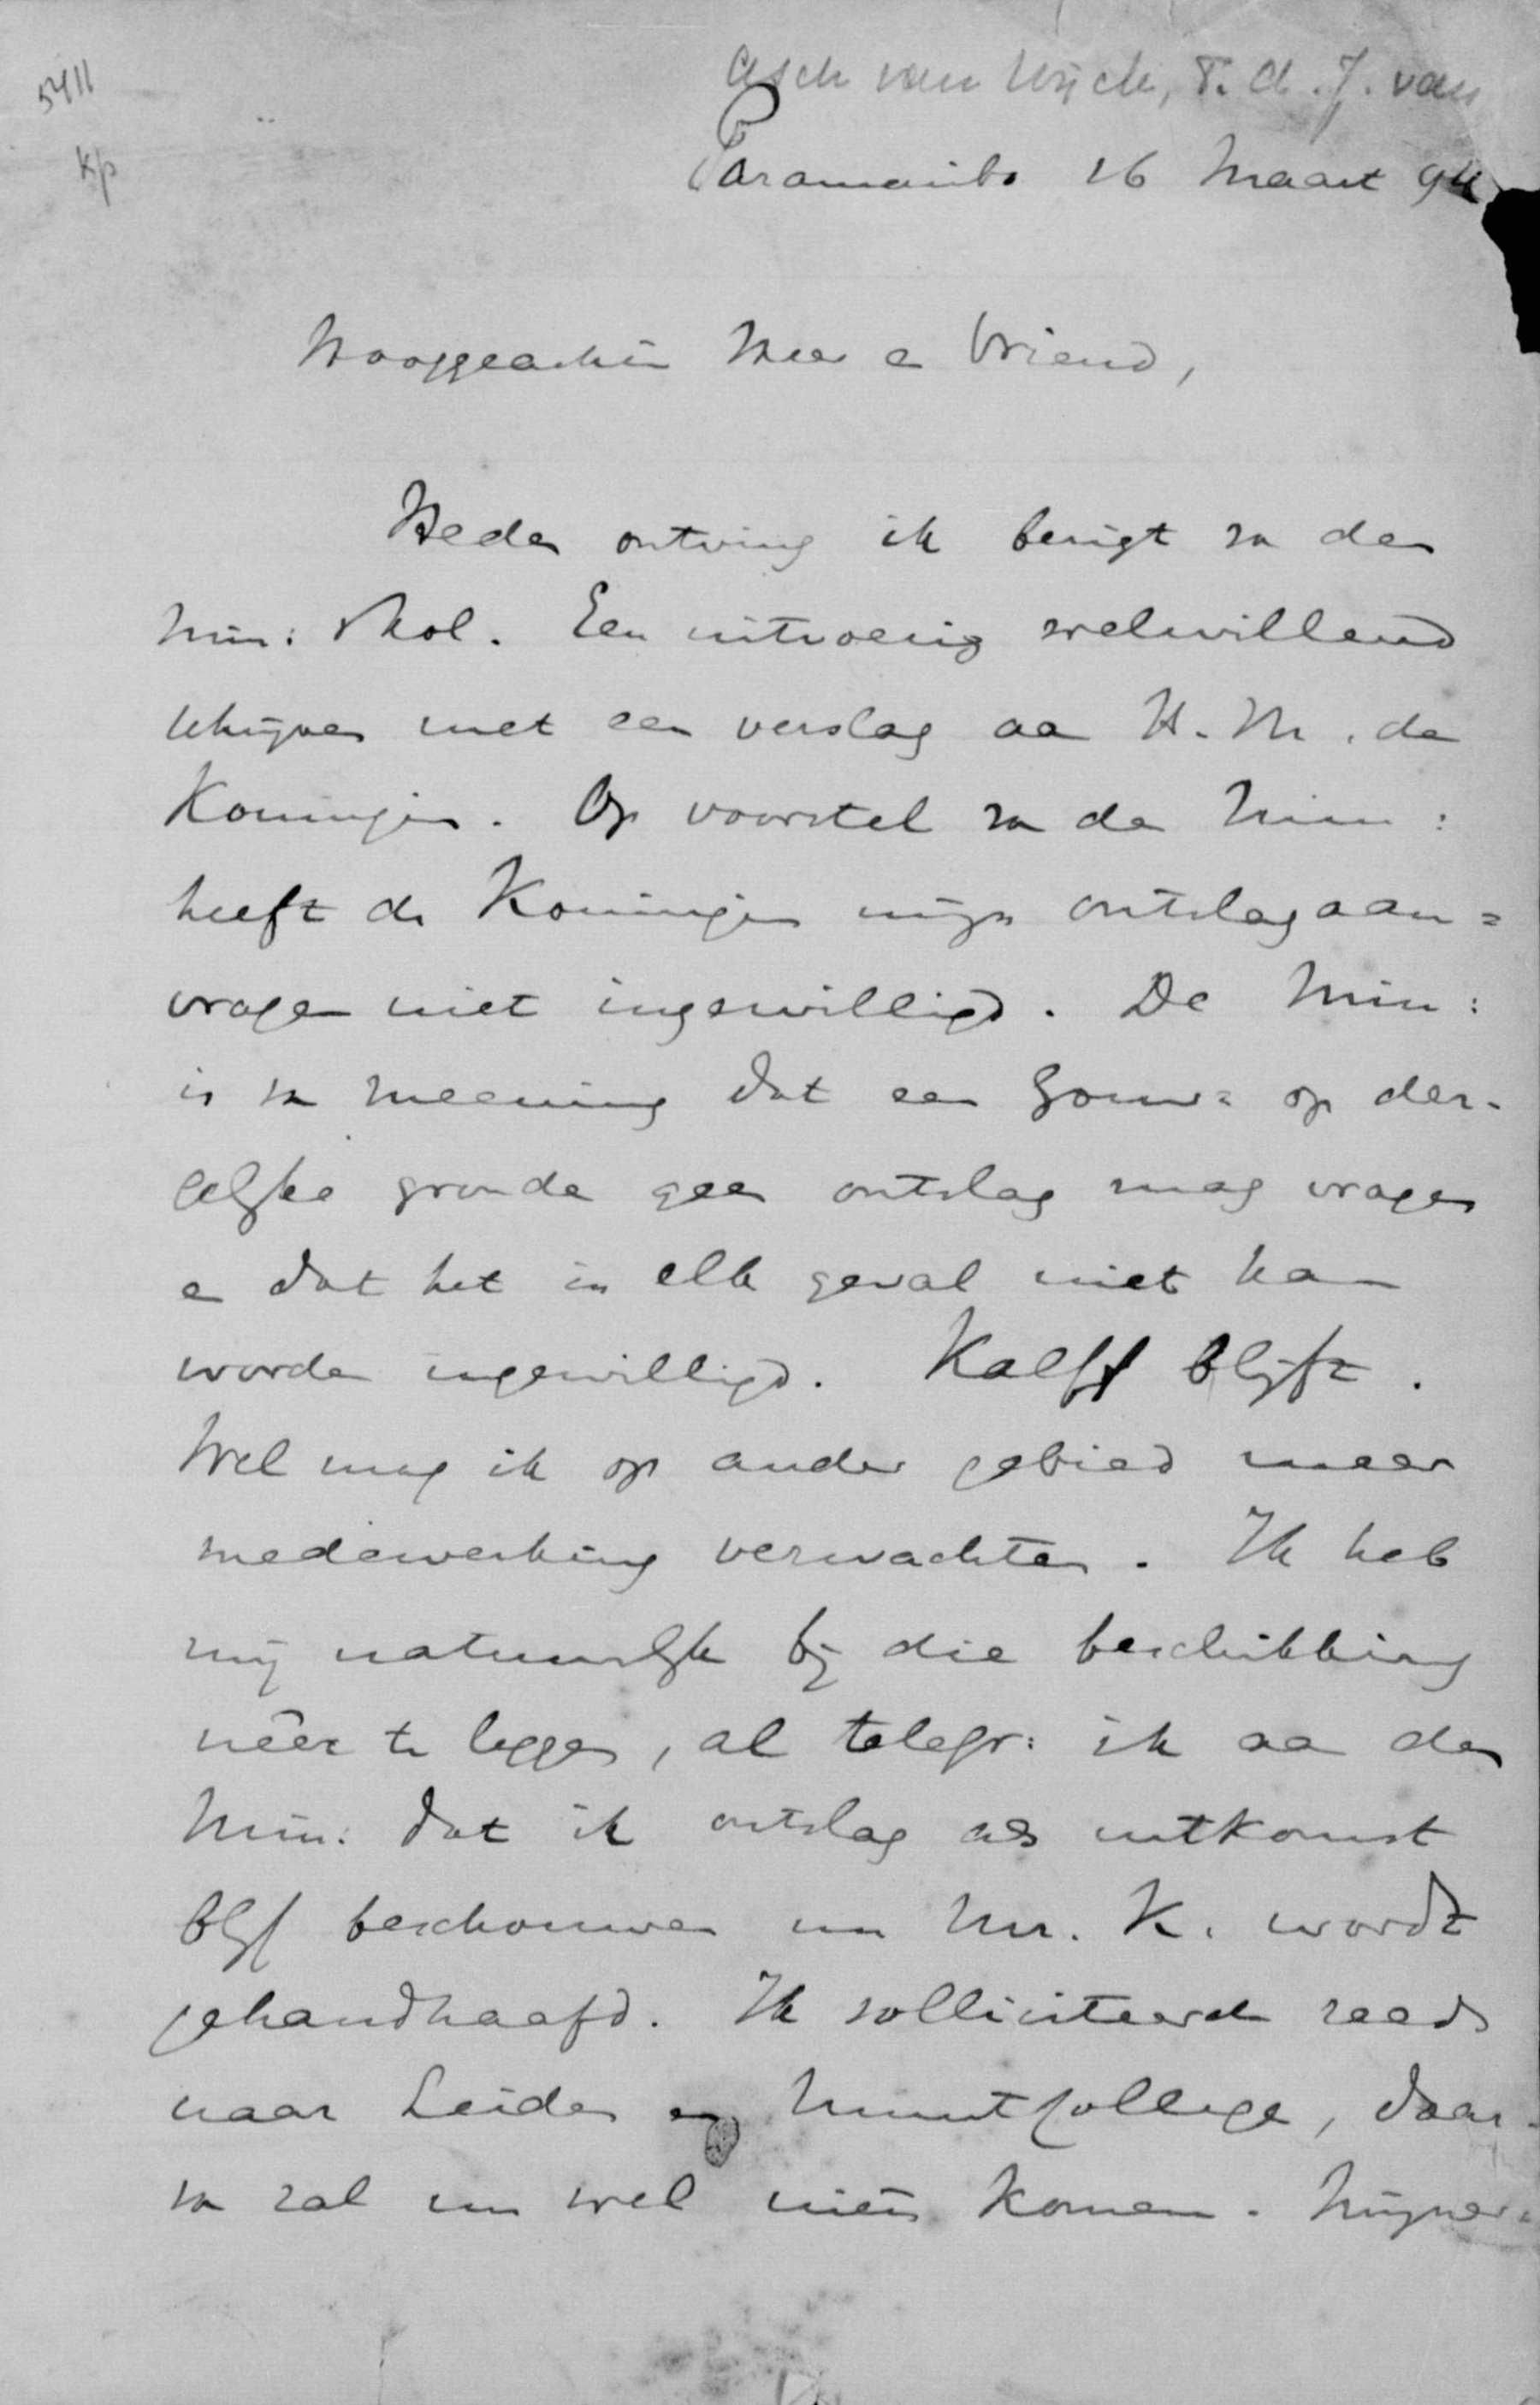 5411
Kp
Asch van Wijck, T. A. J. van
Paramaribo 16 Maart 94
Hooggeachte Heer en Vriend,
Heden ontving ik berigt van den
Min: v Kol. Een uitvoerig welwillend
schrijven met een verslag aan H. M. de
Koningin. Op voorstel van den Min:
heeft de Koningin mijn ontslagaan=
vragen niet ingewilligd. De Min:
is van meening dat een Gouv= op der-
gelijke gronden geen ontslag mag vragen
en dat het in elk geval niet kan
worden ingewilligd. Kalff blijft.
Wel mag ik op ander gebied meer
medewerking verwachten. Ik heb
mij natuurlijk bij die beschikking
nêer te leggen, al telegr: ik aan den
Min: dat ik ontslag als uitkomst
blijf beschouwen nu Mr. K. wordt
gehandhaafd. Ik solliciteerde reeds
naar Leiden en Muntcollege, daar-
van zal nu wel niets komen. Mijner=